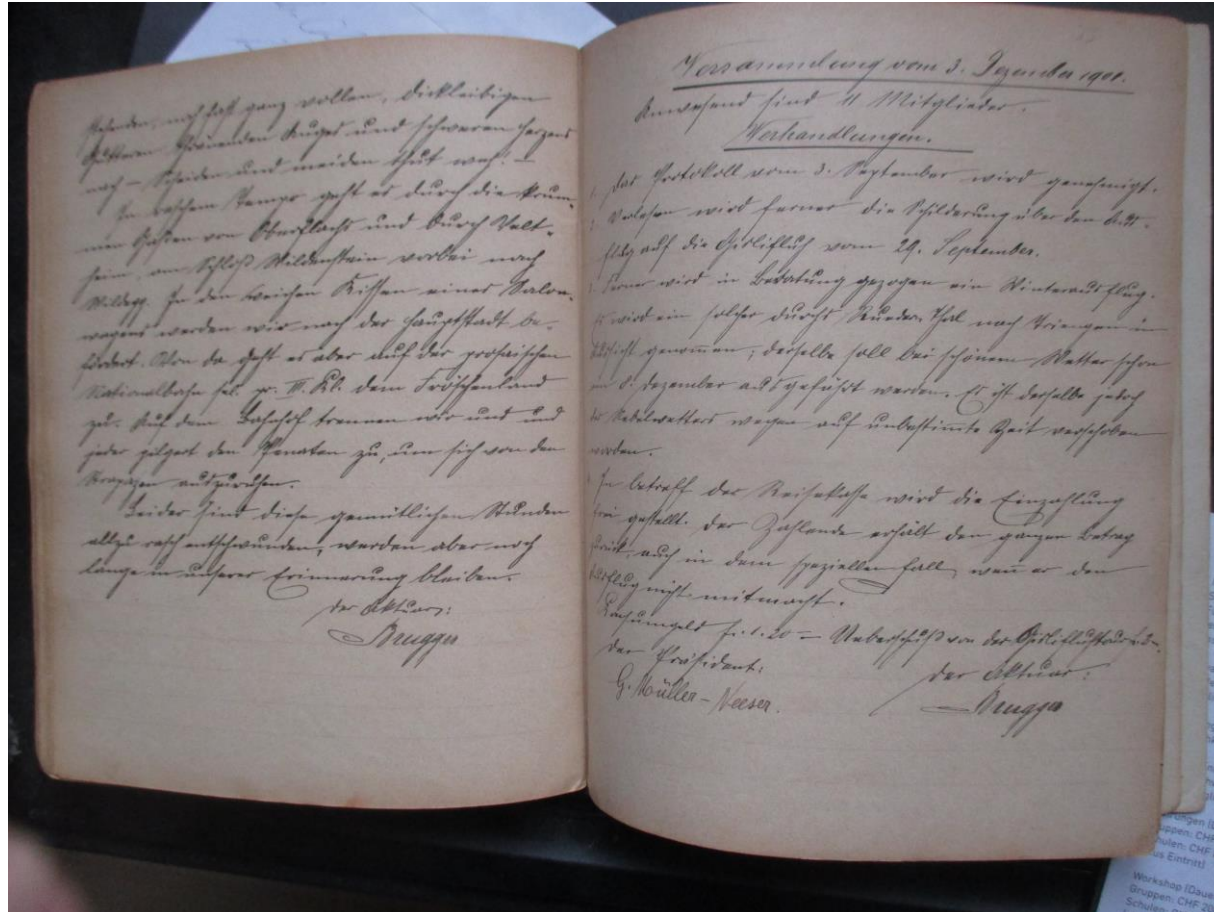 stehenden, noch fast ganz vollen, dickleibigen
Guttern thränenden Auges und schweren Herzens
nach – Scheiden und meiden thut weh! –
In raschem Tempo geht es durch die krum-
men Gassen von Oberflachs und durch Velt-
heim, am Schloß Wildenstein vorbei nach
Wildegg. In den weichen Kissen eines Salon-
wagens werden wir nach der Hauptstadt be-
fördert. Von da geht es aber auf der prosaischen
Nationalbahn sel. pr. III. Kl. dem Fröschenland
zu. Auf dem Bahnhof trennen wir uns und
jeder pilgert den Penaten zu, um sich von den
Strapazen auszuruhen.
Leider sind diese gemütlichen Stunden
allzu rasch entschwunden, werden aber noch
lange in unserer Erinnerung bleiben.
der Aktuar:
Brugger
Versammlung vom 3. Dezember 1901.
Anwesend sind 11 Mitglieder.
Verhandlungen.
1. Das Protokoll vom 3. September wird genehmigt.
2. Verlesen wird ferner die Schilderung über den Aus-
flug auf die Gislifluh vom 29. September.
3. Ferner wird in Beratung gezogen ein Winterausflug.
Es wird ein solcher durchs Rueder-Thal nach Triengen in
Aussicht genommen; derselbe soll bei schönem Wetter schon
am 8. Dezember ausgeführt werden. Es ist derselbe jedoch
des Nebelwetters wegen auf unbestimmte Zeit verschoben
worden.
In betreff der Reisekasse wird die Einzahlung
frei gestellt. Der Zahlende erhält den ganzen Betrag
zurück, auch in dem speziellen Fall, wenn er den
Ausflug nicht mitmacht.
Konsumgeld fr. 1.20 – Ueberschuß von der Gislifluhtour
der Präsident:
der Aktuar:
G. Müller-Neeser.
Brugger
ungen
uppen: CHF
ulen: CHF
us Eintritt)
Workshop (Daue
Gruppen: CHF 20
Schulen: